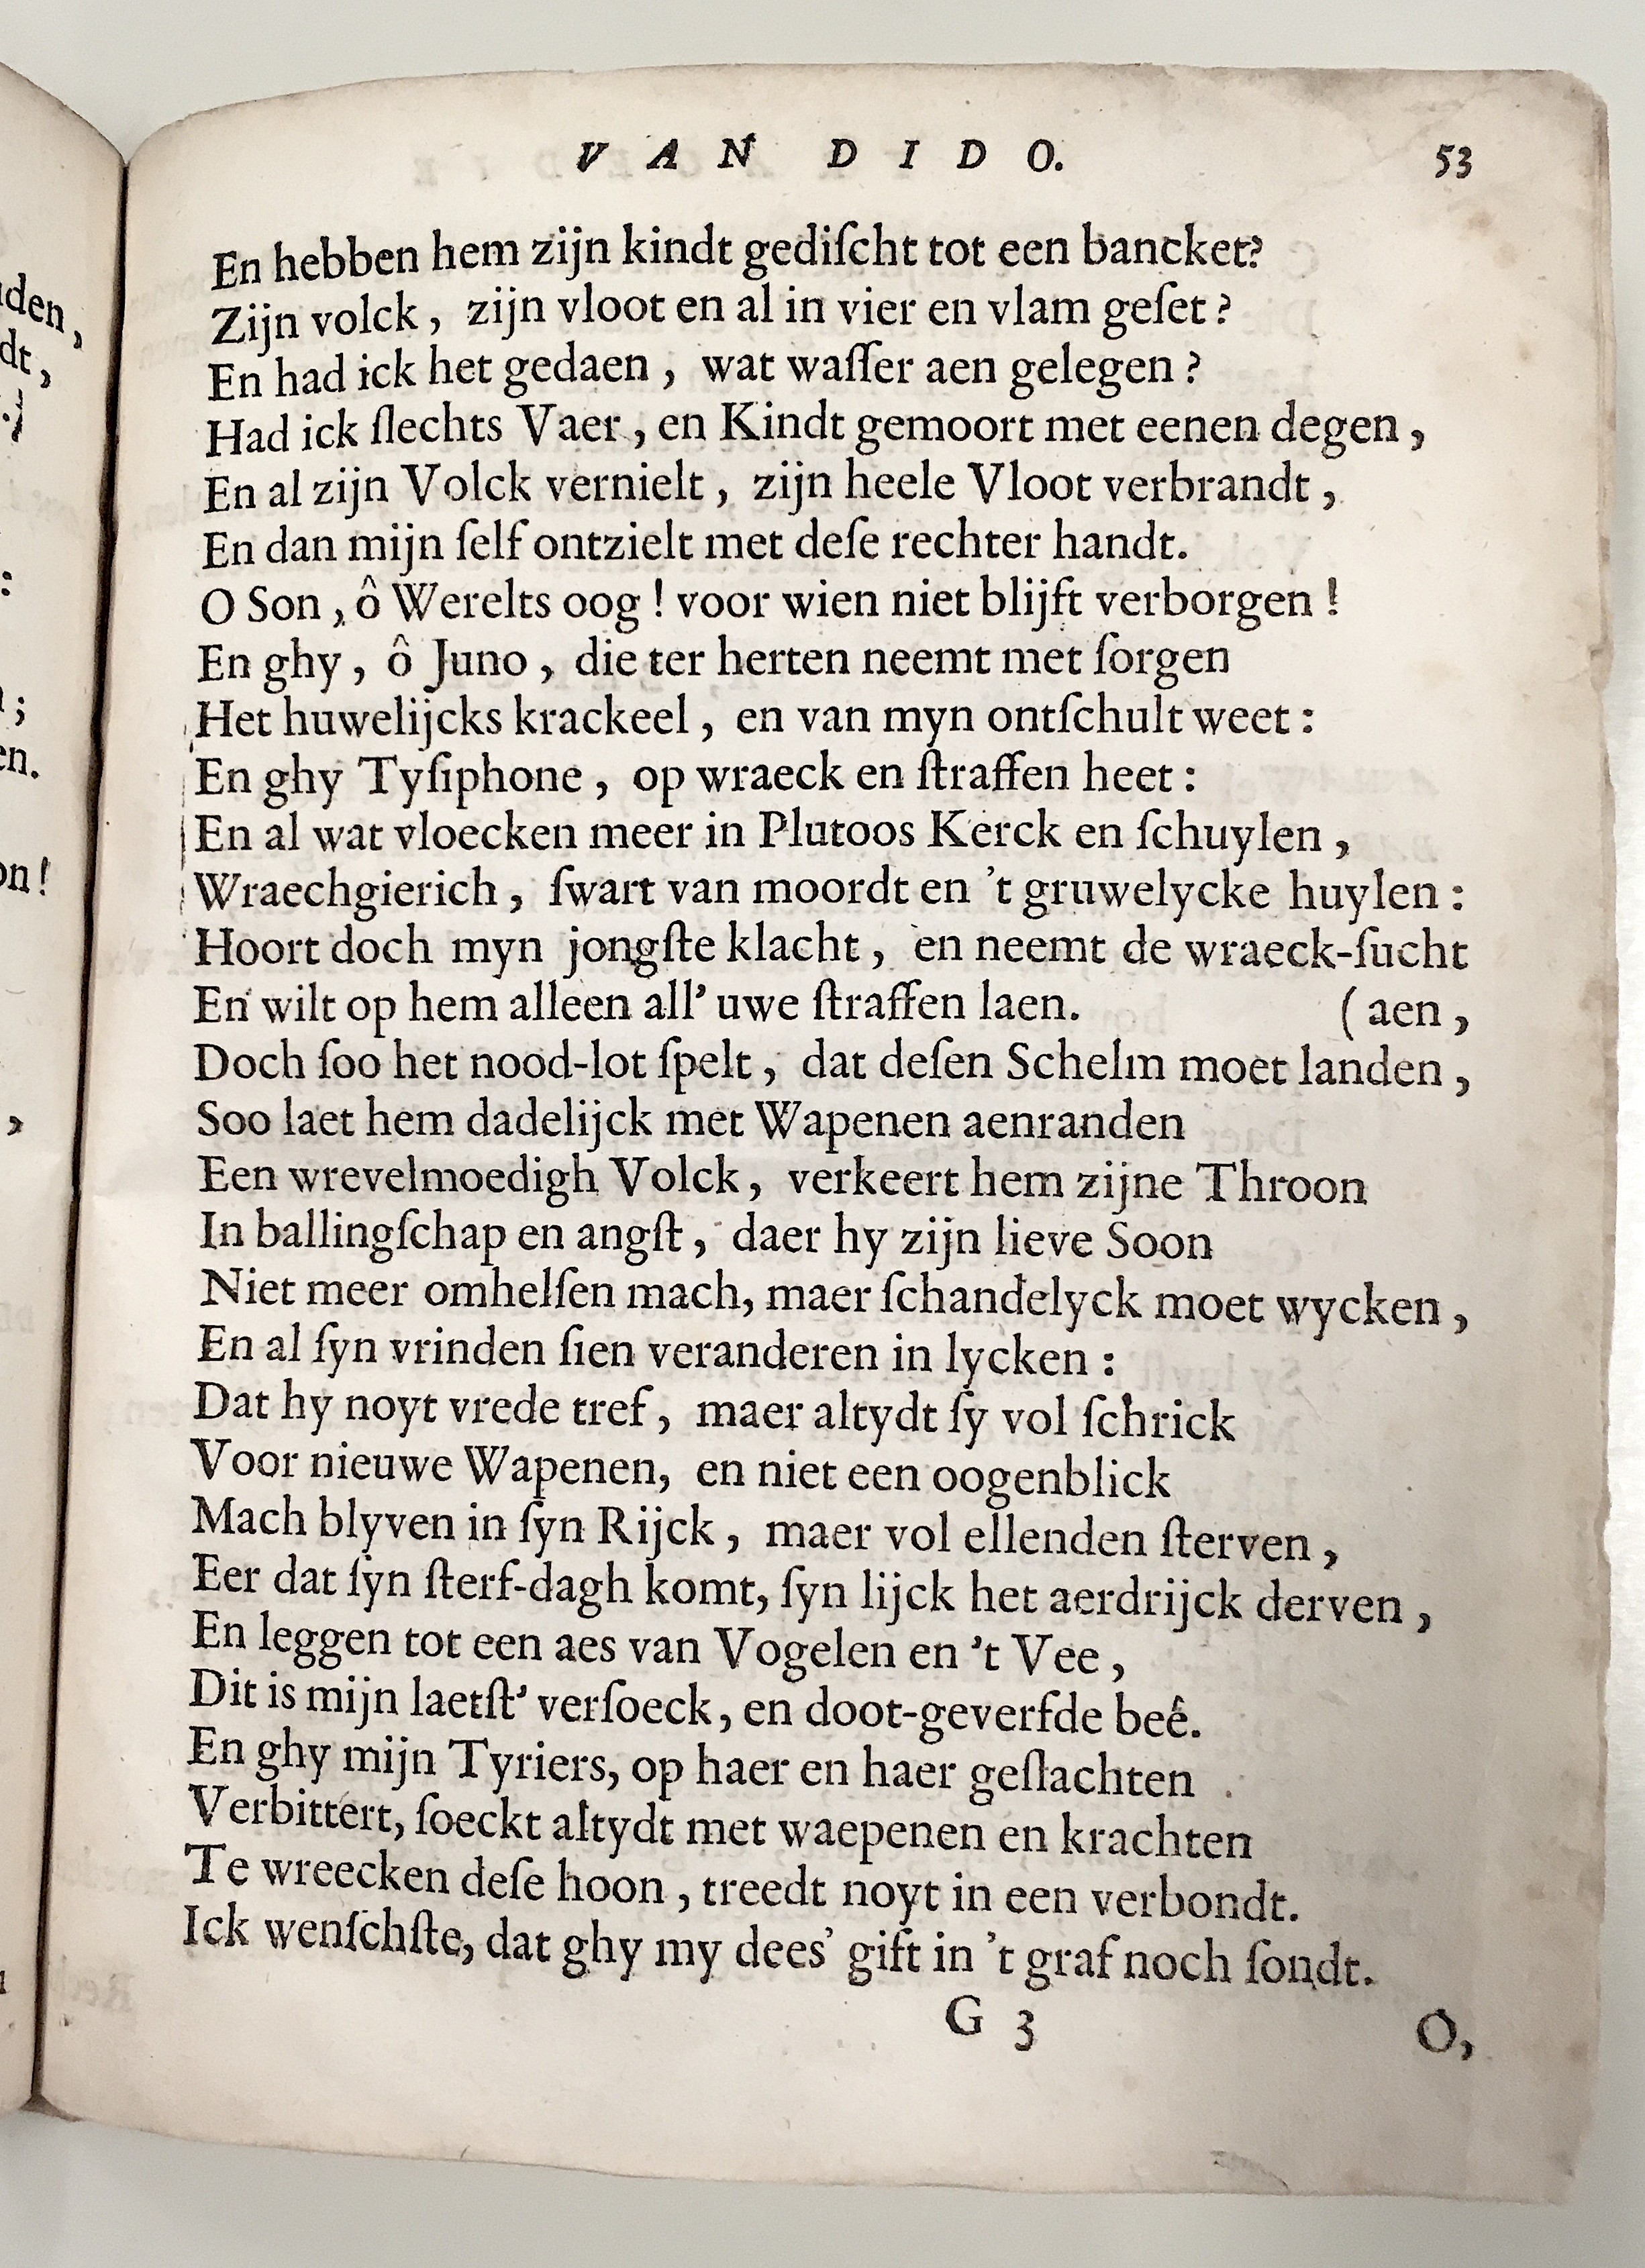 VAN DIDO. 53
En hebben hem zijn kindt gediſcht tot een bancket?
Zijn volck, zijn vloot en al in vier en vlam geſet?
En had ick het gedaen, wat waſſer aen gelegen?
Had ick ſlechts Vaer, en Kindt gemoort met eenen degen,
En al zijn Volck vernielt, zijn heele Vloot verbrandt,
En dan mijn ſelf ontzielt met deſe rechter handt.
O Son, ô Werelts oog! voor wien niet blijft verborgen!
En ghy, ô Juno, die ter herten neemt met ſorgen
Het huwelijcks krackeel, en van myn ontſchult weet:
En ghy Tyſiphone, op wraeck en ſtraffen heet:
En al wat vloecken meer in Plutoos Kerck en ſchuylen,
Wraechgierich, ſwart van moordt en 't gruwelycke huylen:
Hoort doch myn jongſte klacht, en neemt de wraeck-ſucht
En wilt op hem alleen all' uwe ſtraffen laen. (aen,
Doch ſoo het nood-lot ſpelt, dat deſen Schelm moet landen,
Soo laet hem dadelijck met Wapenen aenranden
Een wrevelmoedigh Volck, verkeert hem zijne Throon
In ballingſchap en angſt, daer hy zijn lieve Soon
Niet meer omhelſen mach, maer ſchandelyck moet wycken,
En al ſyn vrinden ſien veranderen in lycken:
Dat hy noyt vrede tref, maer altydt ſy vol ſchrick
Voor nieuwe Wapenen, en niet een oogenblick
Mach blyven in ſyn Rijck, maer vol ellenden ſterven,
Eer dat ſyn ſterf-dagh komt, ſyn lijck het aerdrijck derven,
En leggen tot een aes van Vogelen en 't Vee,
Dit is mijn laetſt' verſoeck, en doot-geverfde beê.
En ghy mijn Tyriers, op haer en haer geſlachten
Verbittert, ſoeckt altydt met waepenen en krachten
Te wreecken deſe hoon, treedt noyt in een verbondt.
Ick wenſchſte, dat ghy my dees' gift in 't graf noch ſondt.
G 3 O,